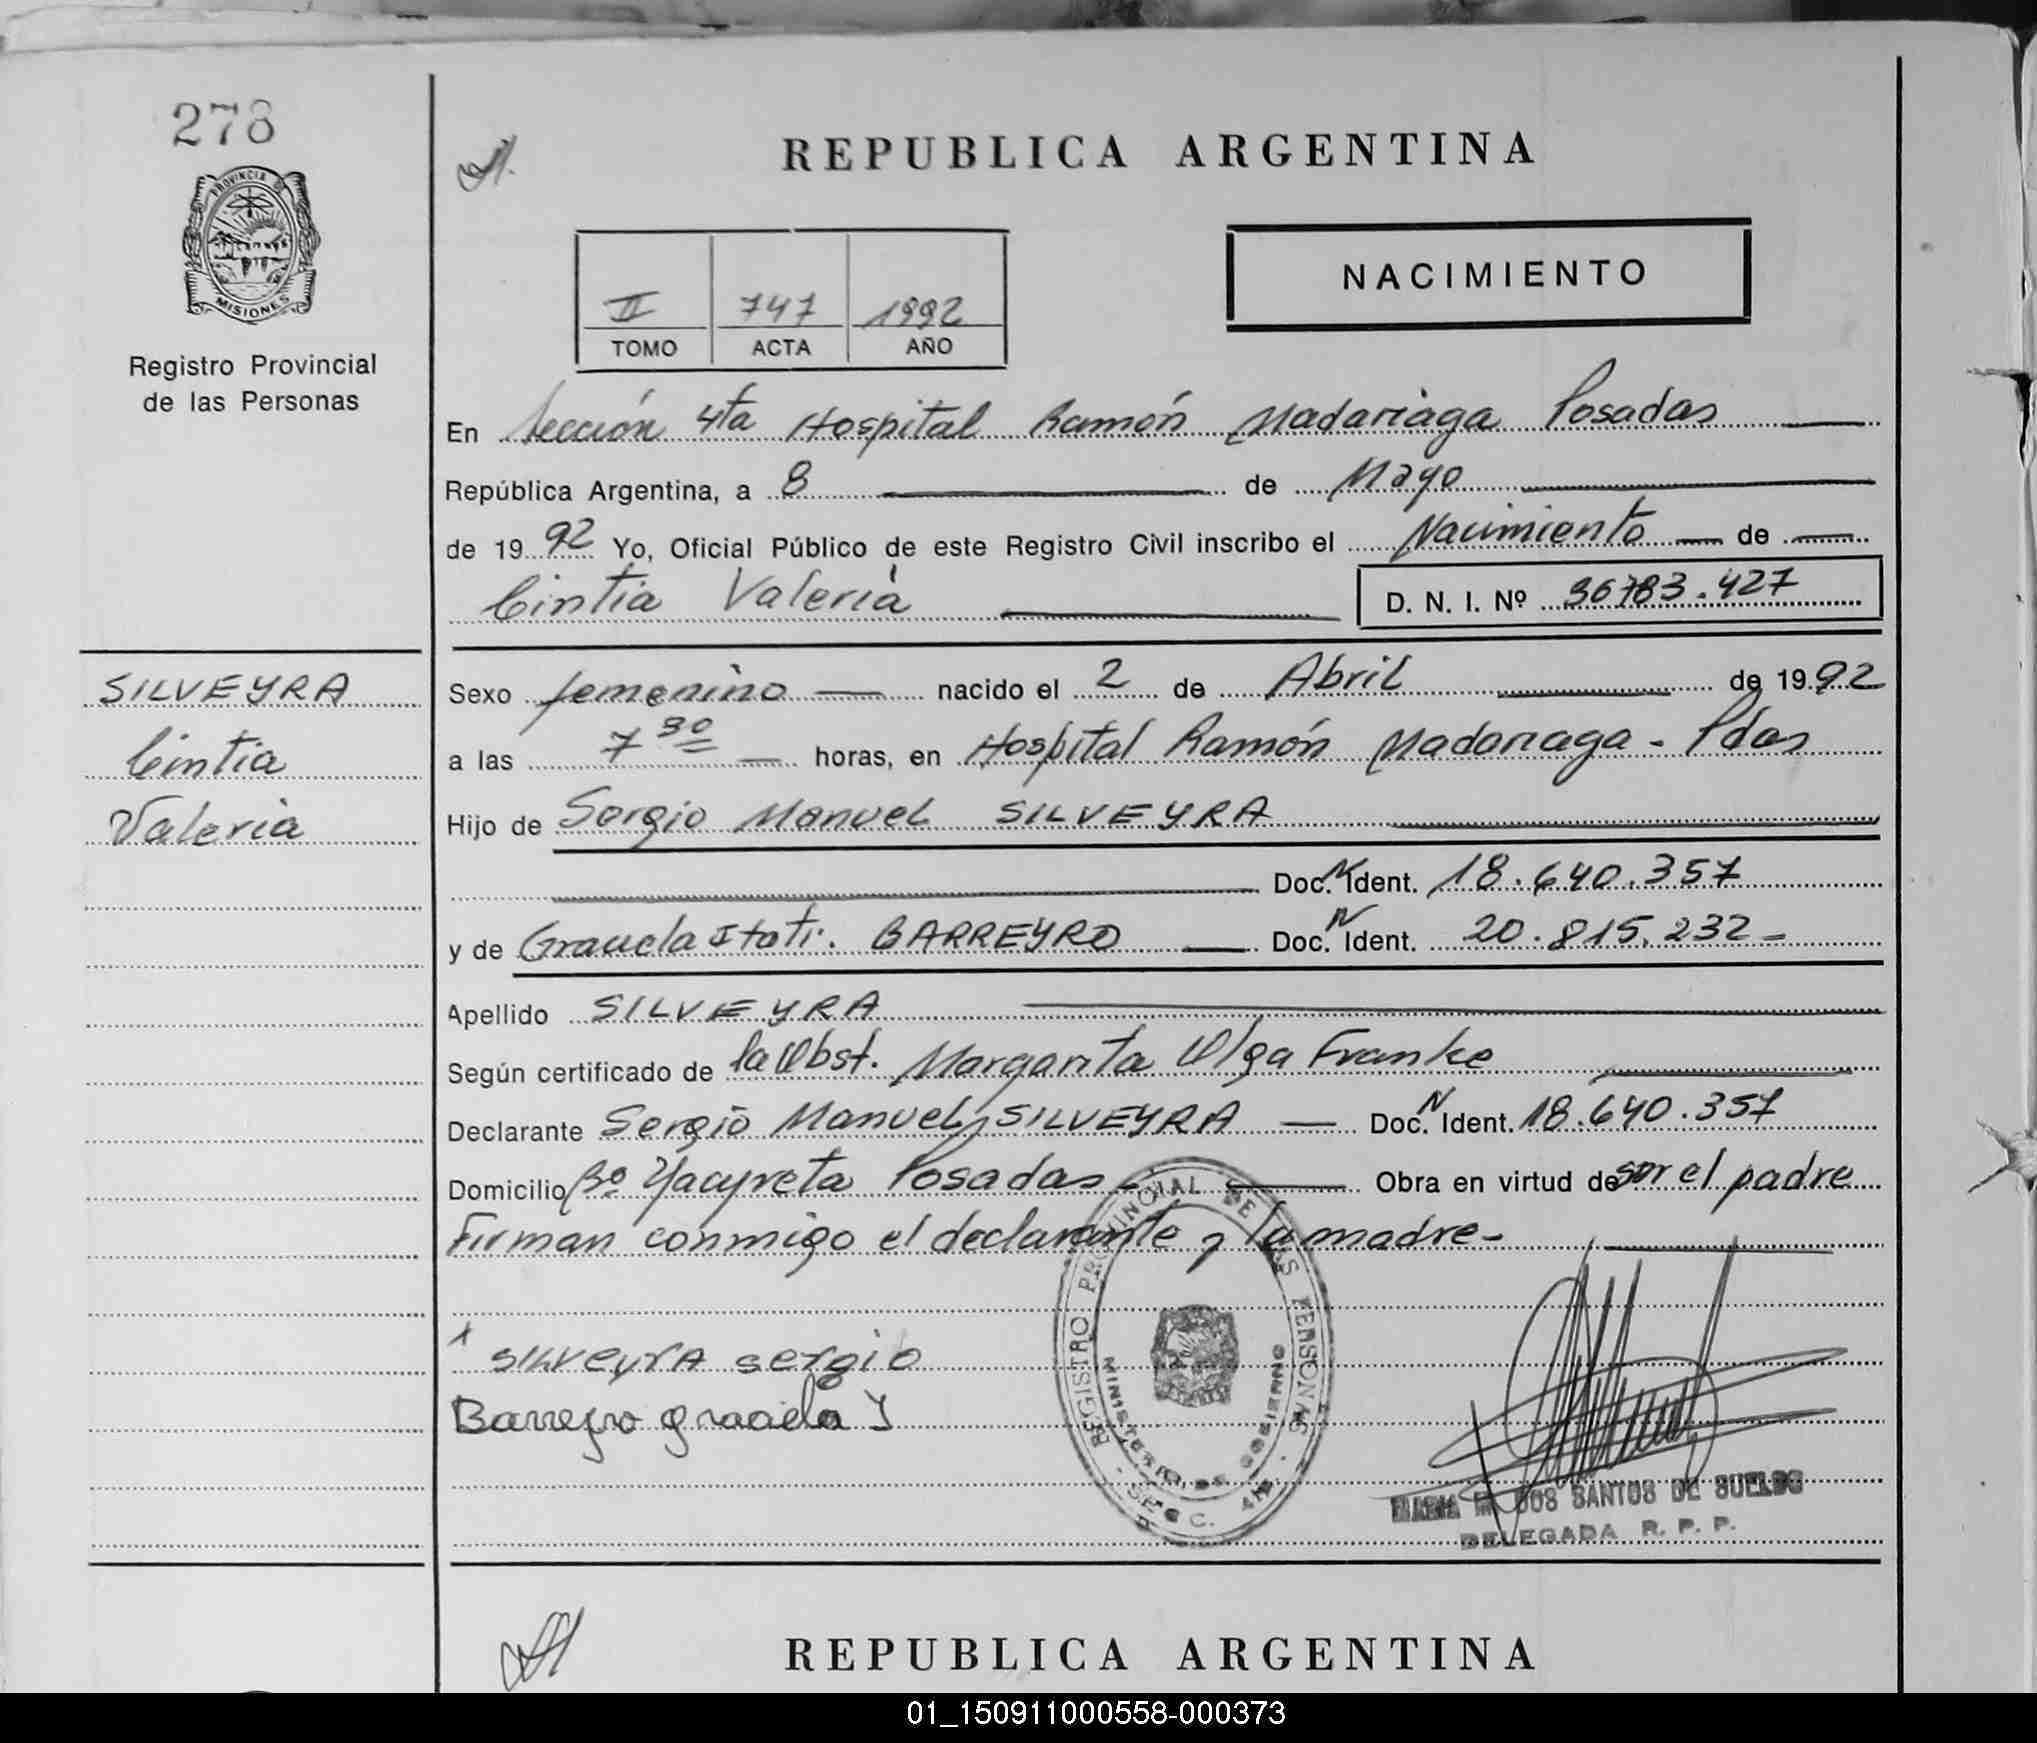 278
PROVINCIA DE
MISIONES
Registro Provincial
de las Personas
SILVEYRA
Cintia
Valeria
REPUBLICA ARGENTINA
II 747 1992
TOMO ACTA AÑO
NACIMIENTO
En Sección 4ta Hospital Ramón Madariaga Posadas
República Argentina, a 8 de Mayo
de 1992 Yo, Oficial Público de este Registro Civil inscribo el Nacimiento de
Cintia Valeria D. N. I. Nº 36783.427
Sexo femenino nacido el 2 de Abril de 1992
a las 7 30 horas, en Hospital Ramón Madariaga - Pdas
Hijo de Sergio Manuel SILVEYRA
Doc. N Ident. 18.640.357
y de Graciela Itati. BARREYRO Doc. N Ident. 20.815.232-
Apellido SILVEYRA
Según certificado de la Obst. Margarita Olga Franke
Declarante Sergio Manuel SILVEYRA Doc. N Ident. 18.640.357
Domicilio Bº Yacyreta Posadas Obra en virtud de ser el padre
Firman conmigo el declarante y la madre-
SILVEYRA Sergio
Barreyro Graciela I
REGISTRO PROVINCIAL DE LAS PERSONAS
MINISTERIO DE GOBIERNO
DOS SANTOS DE SUELDO
DELEGADA R. P. P.
REPUBLICA ARGENTINA
01_150911000558-000373